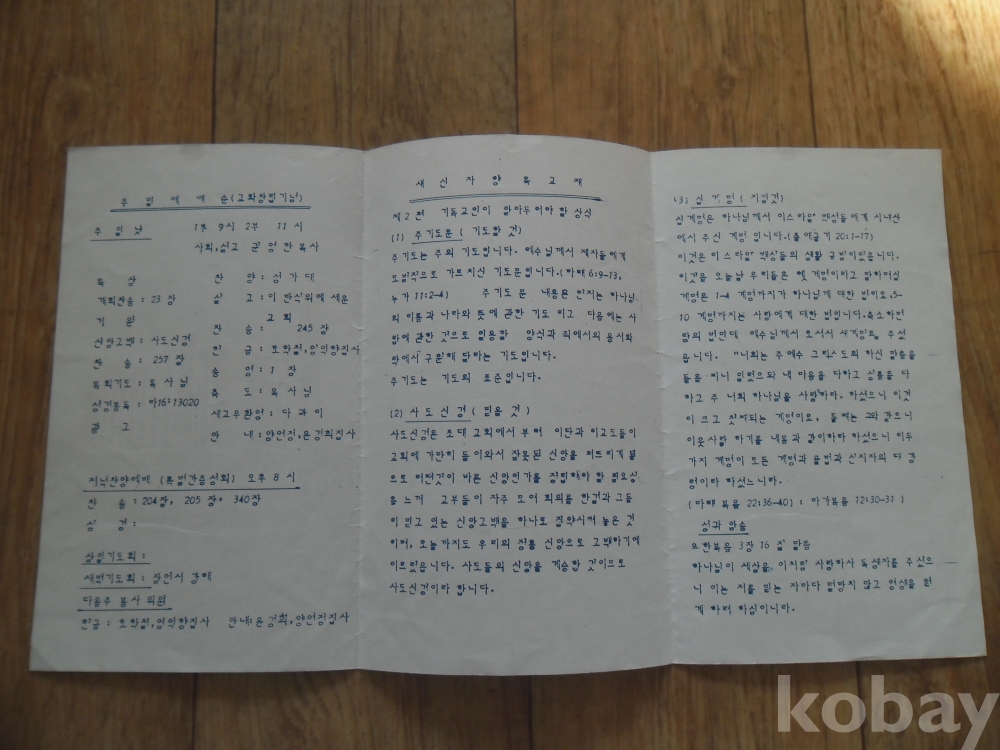 주일예배순(교회창립기념)
주일낮 1부 9시 2부 11시
사회,설교 목사
묵상
개회찬송 : 23장
기원
신앙고백 : 사도신경
찬송 : 257장
목회기도 : 목사님
성경봉독 : 마16:13-20
광고
찬양 : 성가대
설교 : 이 반석위에 세운
교회
찬송 : 245장
헌금 :
송영 : 1장
축도 : 목사님
새교우환영 : 다같이
안내 :
저녁찬양예배 (특별간증성회) 오후 8시
찬송 : 204장, 205장, 340장
성경 :
삼일기도회 :
새벽기도회 : 잠언서 강해
다음주 봉사위원
새신자양육교재
제2편 기독교인이 알아두어야할 상식
(1) 주기도문 (기도할 것)
주기도는 주의 기도입니다. 예수님께서 제자들에게
모범적으로 가르치신 기도문입니다.(마태 6:9-13,
누가 11:2-4) 주기도문 내용은 먼저는 하나님
의 이름과 나라와 뜻에 관한 기도이고 다음에는 사
람에 관한 것으로 일용할 양식과 죄에서의 용서와
악에서 구원해 달라는 기도입니다.
주기도는 기도의 표준입니다.
(2) 사도신경 (믿을 것)
사도신경은 초대 교회에서 부터 이단과 이교도들이
교회에 가만히 들어와서 잘못된 신앙을 퍼트리게 됨
으로 어떤것이 바른 신앙인가를 정립해야 할 필요성
을 느껴 교부들이 자주 모여 회의를 한결과 그들
이 믿고 있는 신앙고백을 하나로 집약시켜 놓은 것
이며, 오늘까지도 우리의 정통 신앙으로 고백하기에
이르렀읍니다. 사도들의 신앙을 계승한 것이므로
사도신경이라 합니다.
(3) 십계명 (지킬것)
십계명은 하나님께서 이스라엘 백성들에게 시내산
에서 주신 계명 입니다.(출애굽기 20:1-17)
이것은 이스라엘 백성들의 생활 규범이었읍니다.
이것을 오늘날 우리들은 옛 계명이라고 말하며십
계명은 1-4 계명까지가 하나님께 대한 법이요,5-
10 계명까지는 사람에게 대한 법입니다.
예수님께서 오셔서 새계명을 주셨
읍니다. 주 예수 그리스도의 하신 말씀을
네 마음을 다하고 성품을 다
하고 주 너희 하나님을 사랑하라. 하셨으니 이것
이 크고 첫째되는 계명이요, 둘째는 그와 같으니
이웃사랑 하기를 내몸과 같이하라 하셨으니 이두
가지 계명이 모든 계명과 율법과 선지자의 대강
령이라 하셨느니라.
(마태복음 22:36-40) : 마가복음 12:30-31)
성과 암송
요한복음 3장 16절 말씀
하나님이 세상을 이처럼 사랑하사 독생자를 주셨으
니 이는 저를 믿는 자마다 멸망치 않고 영생을 얻
게 하려 하심이니라.
kobay